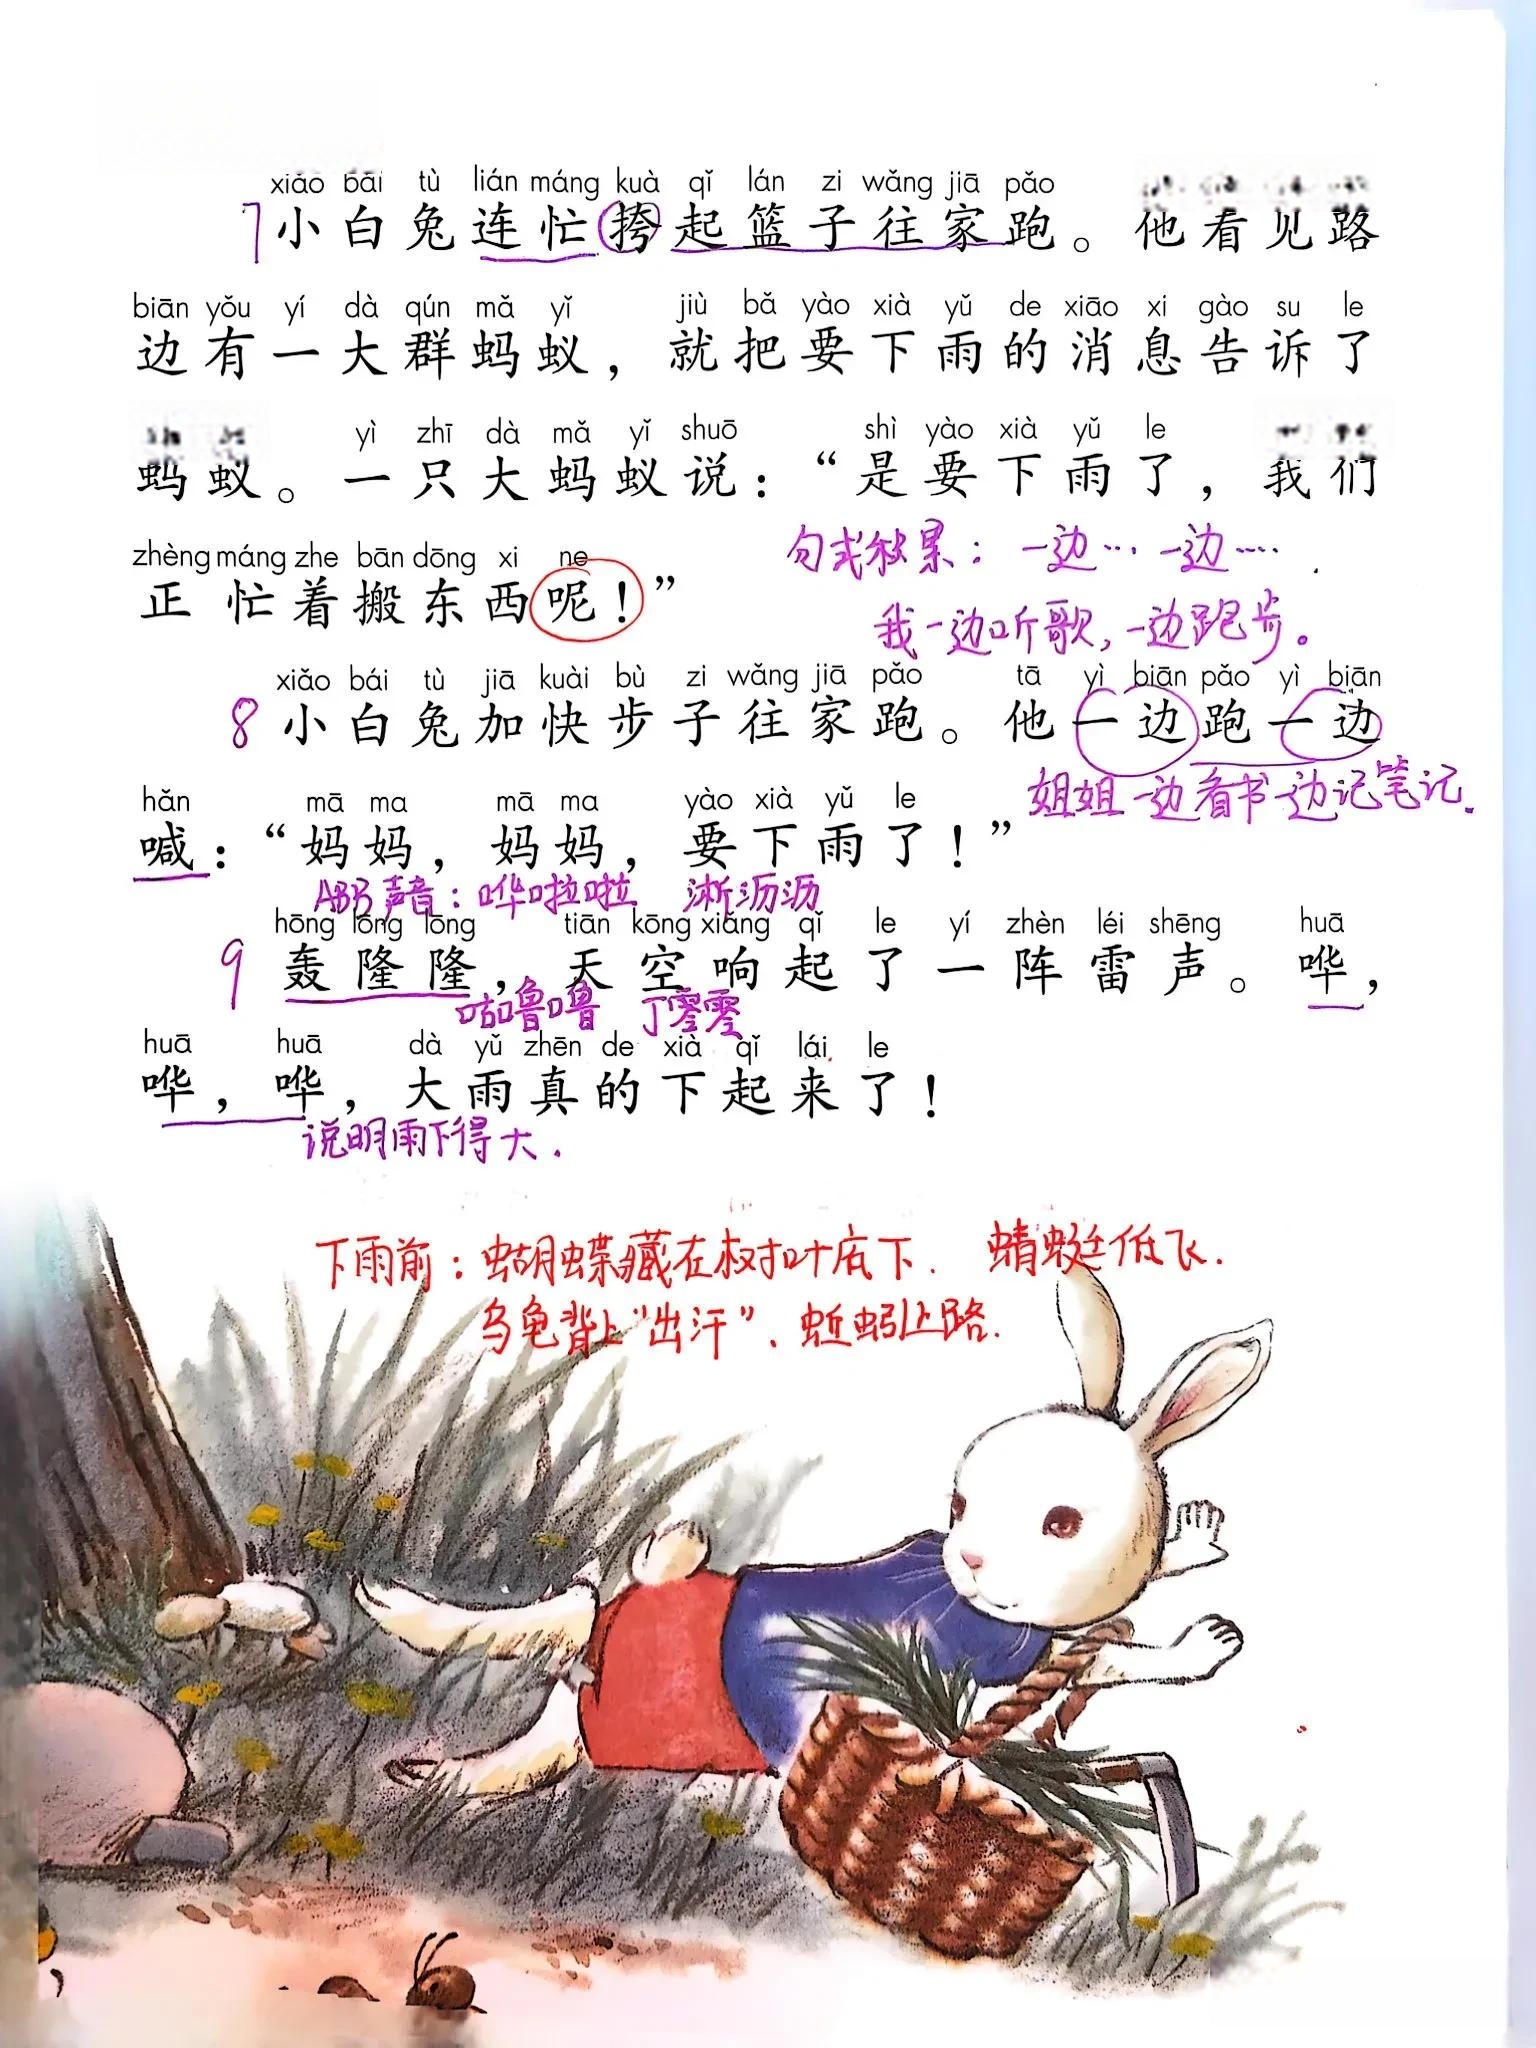 xiǎo bái tù lián máng kuà qǐ lán zi wǎng jiā pǎo
7 小白兔连忙挎起篮子往家跑。他看见路
biān yǒu yí dà qún mǎ yǐ jiù bǎ yào xià yǔ de xiāo xi gào su le
边有一大群蚂蚁，就把要下雨的消息告诉了
yì zhī dà mǎ yǐ shuō shì yào xià yǔ le
蚂蚁。一只大蚂蚁说：“是要下雨了，我们
zhèng máng zhe bān dōng xi ne
正忙着搬东西呢！”
句式积累：一边…一边….
我一边听歌，一边跑步。
xiǎo bái tù jiā kuài bù zi wǎng jiā pǎo tā yì biān pǎo yì biān
8 小白兔加快步子往家跑。他一边跑一边
姐姐一边看书一边记笔记.
hǎn mā ma mā ma yào xià yǔ le
喊：“妈妈，妈妈，要下雨了！”
ABB声音：哗啦啦 淅沥沥
hōng lóng lóng tiān kōng xiǎng qǐ le yí zhèn léi shēng huā
9 轰隆隆，天空响起了一阵雷声。哗，
咕噜噜 丁零零
huā huā dà yǔ zhēn de xià qǐ lái le
哗，哗，大雨真的下起来了！
说明雨下得大.
下雨前：蝴蝶藏在树叶底下. 蜻蜓低飞.
乌龟背上“出汗”. 蚯蚓上路.